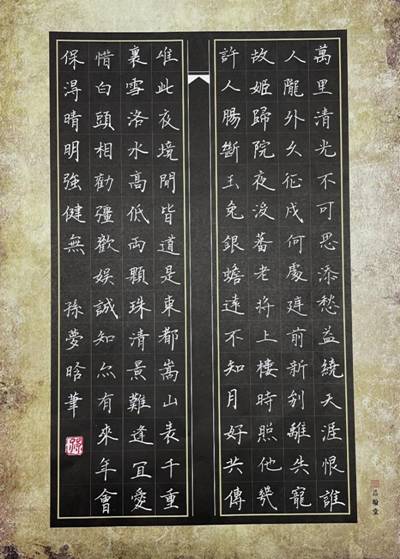 萬里清光不可思添愁益繞天涯恨誰
人隴外久征戍何處庭前新別離失寵
故姬歸院夜沒蕃老將上樓時照他幾
許人腸斷玉兔銀蟾遠不知月好共傳
唯此夜境閒皆道是東都嵩山表千重
裏雪洛水高低兩顆珠清景難逢宜愛
惜白頭相勸彊歡娛誠知亦有來年會
保得晴明強健無 孫夢晗筆